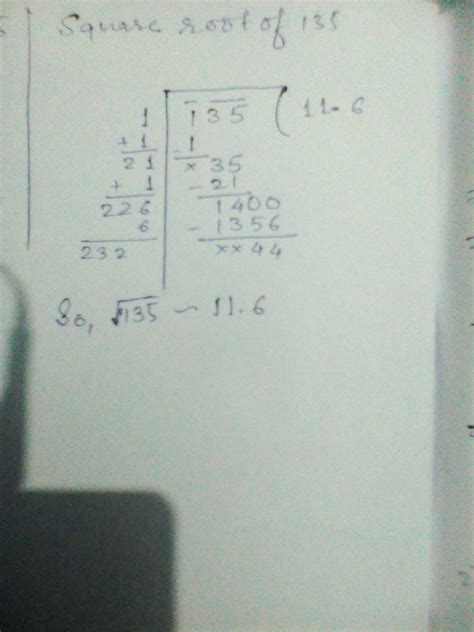 Square root of 135
1 135 ( 11.6
+ 1 - 1
21 × 35
+ 1 - 21
226 1400
6 - 1356
232 ××44
So, √135 ~ 11.6